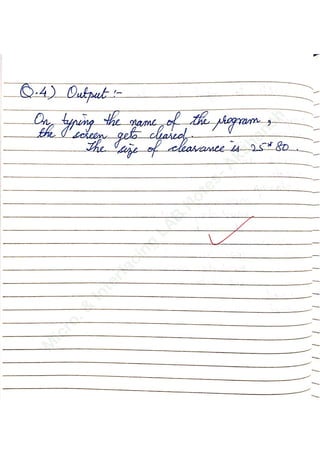 Q.4) Output :-
On typing the name of the program,
the screen gets cleared.
The size of clearance is 25*80.
Micro. & Interfacing LAB Notes-